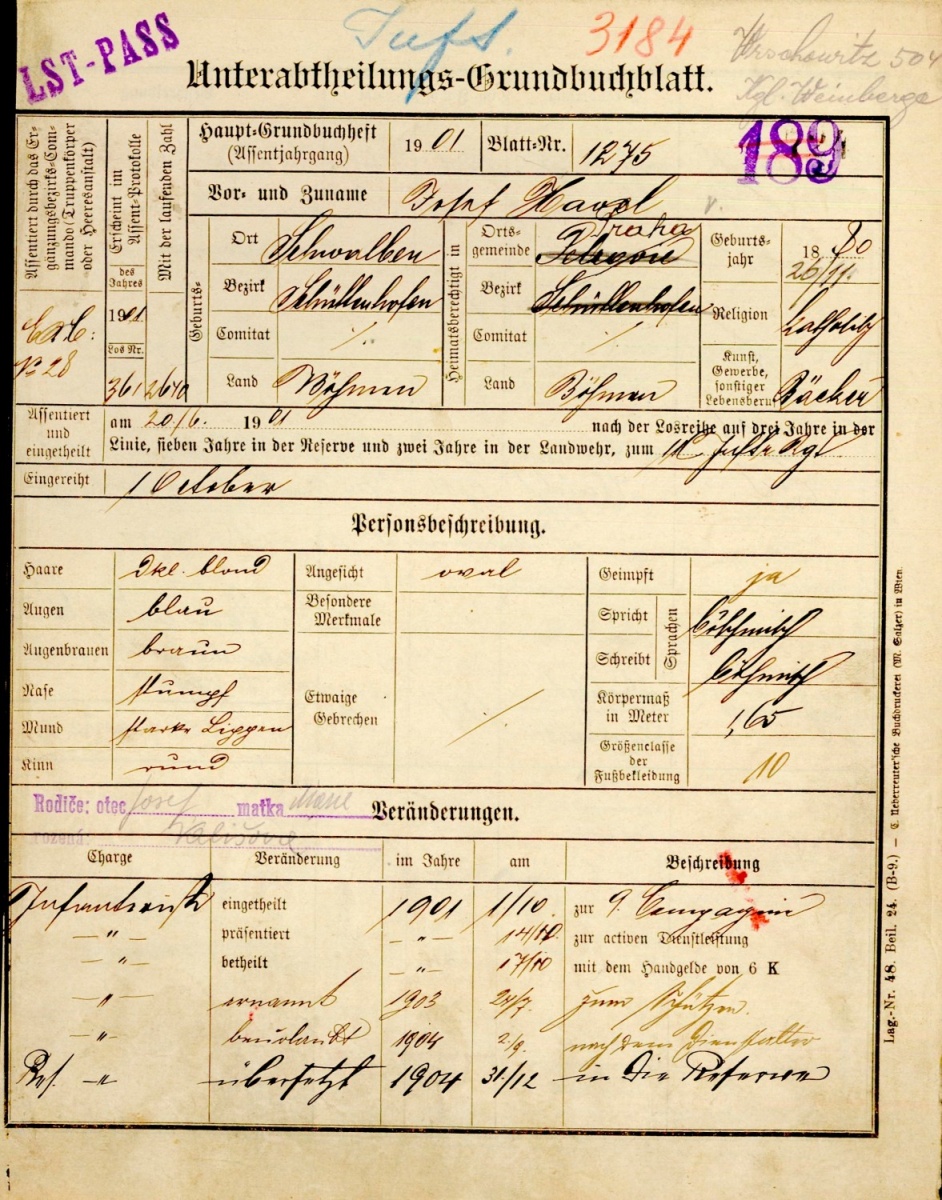 LST-PASS
3184
Wrschowitz 504
Kgl. Weinberge
Unterabtheilungs-Grundbuchblatt.
189
Assentiert durch das Er-
gänzungsbezirks-Com-
mando (Truppenkörper
oder Heeresanstalt)
Erscheint im
Assent-Protokolle
des
Jahres
1901
Los Nr.
361
Mit der laufenden Zahl
2640
No 28
Haupt-Grundbuchheft
(Assentjahrgang)
1901
Blatt-Nr.
1275
Vor- und Zuname
Josef Havel
Geburts-
Ort
Schwalben
Bezirk
Schüttenhofen
Comitat
Land
Böhmen
Heimatsberechtigt in
Orts-
gemeinde
Praha
Bezirk
Schüttenhofen
Comitat
Land
Böhmen
Geburts-
jahr
1880
26/11.
Religion
katholisch
Kunst,
Gewerbe,
sonstiger
Lebensberuf
Bäcker
Assentiert
und
eingetheilt
am 20/6. 1901 nach der Losreihe auf drei Jahre in der
Linie, sieben Jahre in der Reserve und zwei Jahre in der Landwehr, zum 11. Inftr Rgt
Eingereiht
1 October
Personsbeschreibung.
Haare dkl. blond
Augen blau
Augenbrauen braun
Nase stumpf
Mund starke Lippen
Kinn rund
Angesicht oval
Besondere
Merkmale
Etwaige
Gebrechen
Geimpft ja
Sprachen
Spricht böhmisch
Schreibt böhmisch
Körpermaß
in Meter
1,65
Größenclasse
der
Fußbekleidung
10
Rodiče: otec Josef matka Marie
rozená:
Veränderungen.
Charge Veränderung im Jahre am Beschreibung
Infanterist eingetheilt 1901 1/10. zur 9. Compagnie
-"- präsentiert -"- 14/10. zur activen Dienstleistung
-"- betheilt -"- 17/10 mit dem Handgelde von 6 K
-"- ernannt 1903 24/7. zum Schützen.
-"- beurlaubt 1904 2/9. nach dem Dienstalter
Res. -"- übersetzt 1904 31/12 in die Reserve
Lag.-Nr. 48. Beil. 24. (B-9.) — C. Ueberreuter'sche Buchdruckerei (M. Salzer) in Wien.